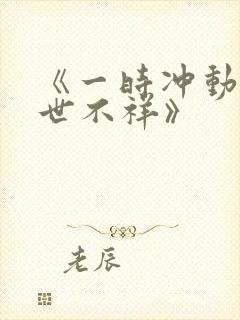 《一時冲動
世不祥》
老辰